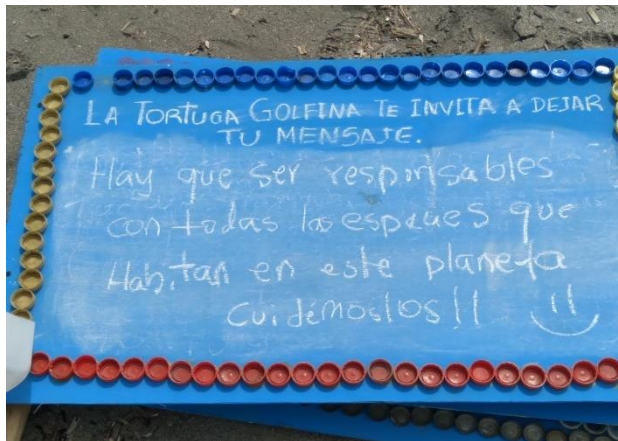 LA TORTUGA GOLFINA TE INVITA A DEJAR
TU MENSAJE.
Hay que ser responsables
con todas las especies que
Habitan en este planeta
Cuidémoslos!!